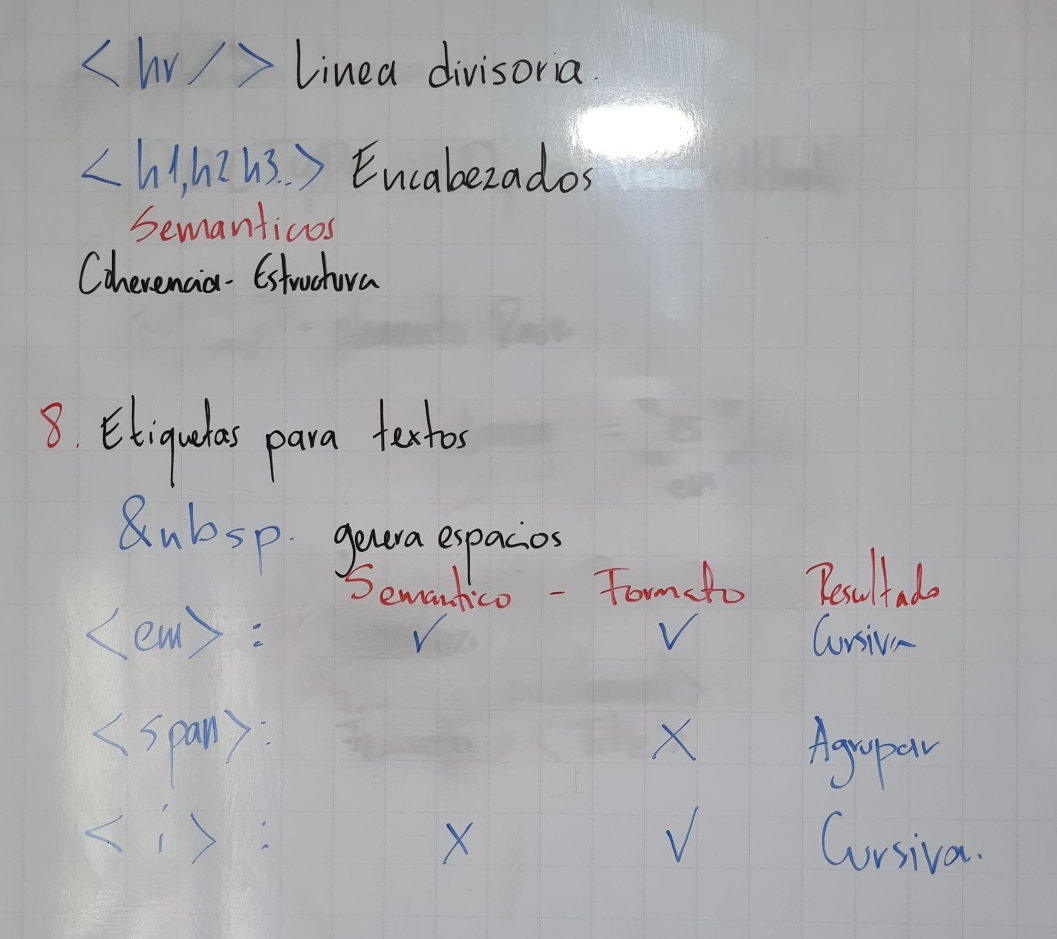 <hr/> Linea divisoria.
<h1,h2 h3..> Encabezados
Semanticos
Coherencia - Estructura
8. Etiquetas para textos
&nbsp. genera espacios
Semantico - Formato Resultado
<em> : ✓ ✓ Cursiva
<span>: X Agrupar
<i> : X ✓ Cursiva.